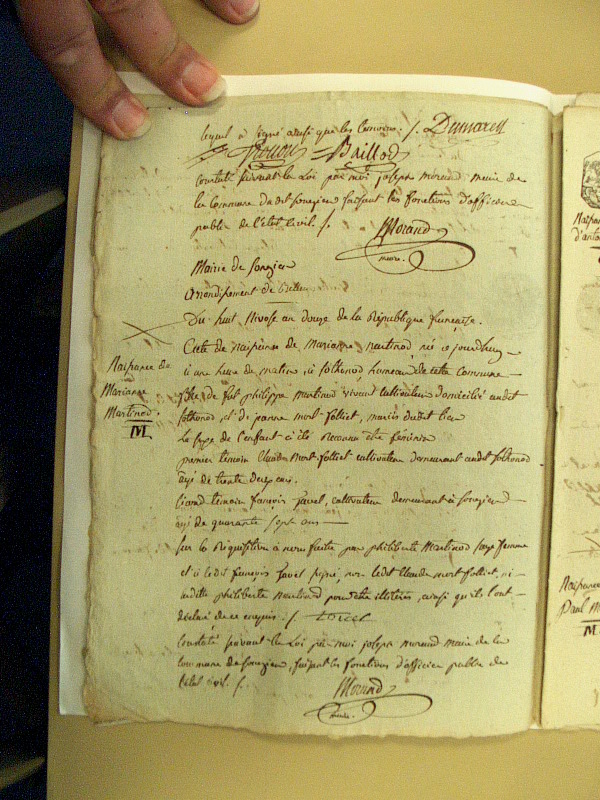 lequel a signé ainsi que les temoins ./. Dumarest
Baillod
constaté suivant la Loi par moi joseph morand maire de
la Commune du dit songieu faisant les fonctions d'officier
public de l'état civil ./.
Morand
maire
Mairie de songieu
Arrondissement de Belley
Du huit Nivose an douze de la République française.
Acte de naissance de Marianne martinod, né ce jourd'huy
à une heure de matin, à sothonod, hameau de cette commune
fille de feu philippe martinod vivant cultivateur domicilié audit
sothonod, et de jeanne mort-folliet, mariés dudit lieu
Le sexe de l'enfant a été reconnu être féminin
premier témoin Claude Mort-folliet cultivateur demeurant audit sothonod
agé de trente ans
second témoin françois favel, cultivateur demeurant à songieu
agé de quarante sept ans
sur la Réquisition à nous faite par philiberte Martinod sage femme
et a ledit françois favel signé, non ledit Claude mort folliet, ni
ladite philiberte martinod pour être illitérés, ainsi qu'ils l'ont
déclaré de ce enquis ./.
Constaté suivant la Loi par moi joseph morand maire de la
commune de songieu, faisant les fonctions d'officier public de
l'état civil ./.
Morand
maire
Naissance de
Marianne
Martinod.
M
Naissance
d'anto
Naissance
Paul M
M